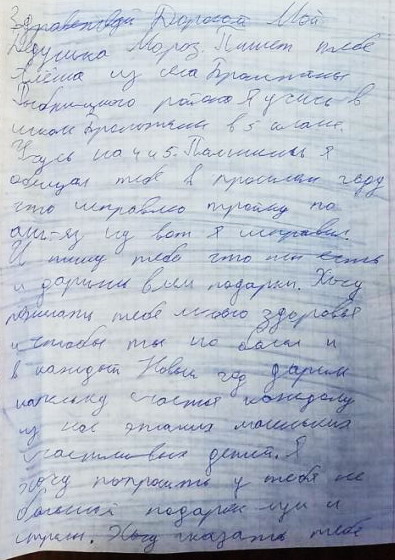 Здравствуй Дорогой Мой
Дедушка Мороз. Пишет тебе
Алёша из села
района Я учусь в
школе в 5 классе.
Учусь на 4 и 5. Помнишь я
обещал тебе в прошлом году
что исправлю тройку по
анг-яз и вот я исправил.
И пишу тебе что ты есть
и даришь всем подарки. Хочу
пожелать тебе много здоровья
и чтобы ты не болел и
в каждый Новый год дарил
счастья каждому
из нас этаких маленьких
счастливых детей. Я
хочу попросить у тебя не
большой подарок лук и
стрелы. Хочу сказать тебе